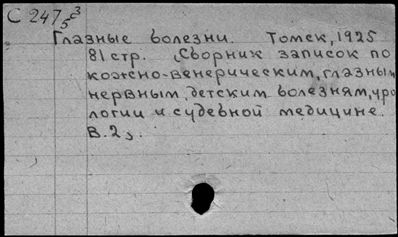 С 247 3/5
Глазные болезни. Томск, 1925
81 стр. Сборник записок по
кожно-венерическим, глазным
нервным, детским болезням, уро
логии и судебной медицине.
В. 2,.